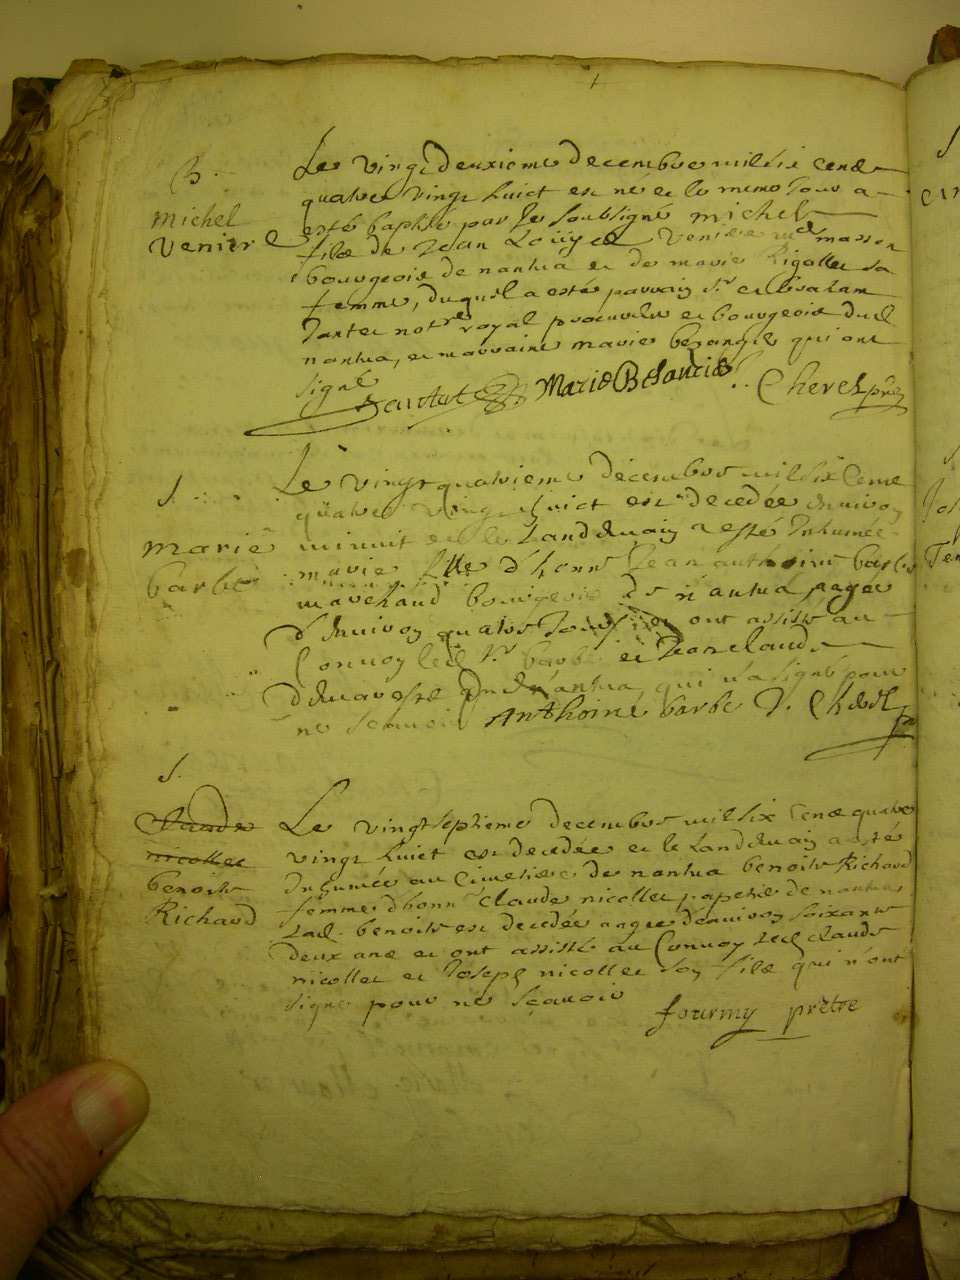 B.
Michel
Venitre
Le vingt deuxieme decembre mil six cent
quatre vingt huict est né et le meme Jour a
esté baptisé par le soubsigné michel
fils de Jean Louÿs Venitre me masson
bourgeois de nantua et de marie Rigollet sa
femme, duquel a esté parrain Sr
Tartet notre royal procureur et bourgeois dud
nantua, et marraine marie qui ont
signé
Marie Cheret pre
S.
marie
barbe
Le vingt quatrieme decembre mil six cent
quatre vingt huict est decedée environ
minuit et le Landemain a esté Inhumée
marie fille d'honn Jean anthoine barbe
marchand bourgeois de nantua agée
d'environ quatre Jours et ont assisté au
Convoy led Sr barbe et Jean claude
de nantua, qui n'a signé pour
ne scavoir Anthoine barbe
S.
Claude
nicollet
benoite
Richard
Le vingt septieme decembre mil six Cent quatre
vingt huict est decedée et le Landemain a esté
Inhumée au Cimetiere de nantua benoite Richard
femme d'honn claude nicollet papetier de nantua
lad. benoite est decedée agée d'environ soixante
deux ans et ont assisté au Convoy led claude
nicollet et Joseph nicollet son fils qui n'ont
signé pour ne sçavoir
fourmy prêtre